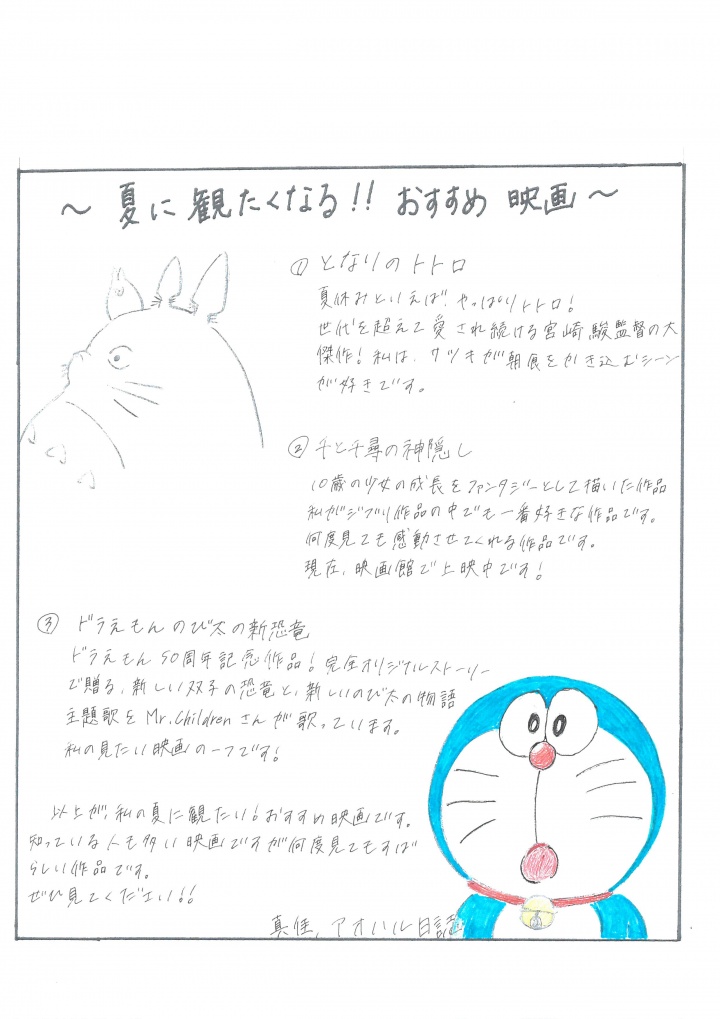 ～夏に観たくなる!! おすすめ 映画～
① となりのトトロ
夏休みといえば、やっぱりトトロ!
世代を超えて愛され続ける宮崎駿監督の大
傑作!私は、サツキが朝食をかき込むシーン
が好きです。
② 千と千尋の神隠し
10歳の少女の成長をファンタジーとして描いた作品
私がジブリ作品の中でも一番好きな作品です。
何度見ても感動させてくれる作品です。
現在、映画館で上映中です!
③ ドラえもん のび太の新恐竜
ドラえもん50周年記念作品!完全オリジナルストーリー
で贈る、新しい双子の恐竜と、新しいのび太の物語
主題歌をMr.Childrenさんが歌っています。
私の見たい映画の一つです!
以上が、私の夏に観たい!おすすめ映画です。
知っている人も多い映画ですが何度見てもすば
らしい作品です。
ぜひ見てください!!
真佳、アオハル日誌